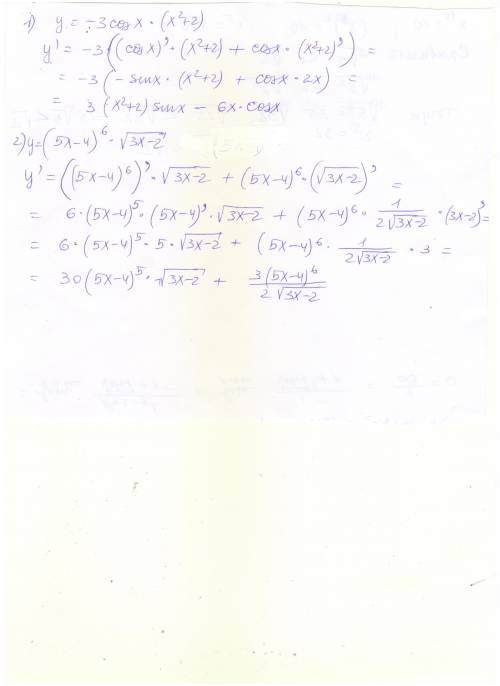 1) y = -3cosx · (x²+2)
y' = -3 · ((cosx)' · (x²+2) + cosx · (x²+2)') =
= -3 (-sinx · (x²+2) + cosx · 2x) =
= 3 (x²+2) sinx - 6x · cosx
2) y = (5x-4)⁶ · √(3x-2)
y' = ((5x-4)⁶)' · √(3x-2) + (5x-4)⁶ · (√(3x-2))' =
= 6 · (5x-4)⁵ · (5x-4)' · √(3x-2) + (5x-4)⁶ · 1/(2√(3x-2)) · (3x-2)' =
= 6 · (5x-4)⁵ · 5 · √(3x-2) + (5x-4)⁶ · 1/(2√(3x-2)) · 3 =
= 30 (5x-4)⁵ · √(3x-2) + 3(5x-4)⁶/(2√(3x-2))